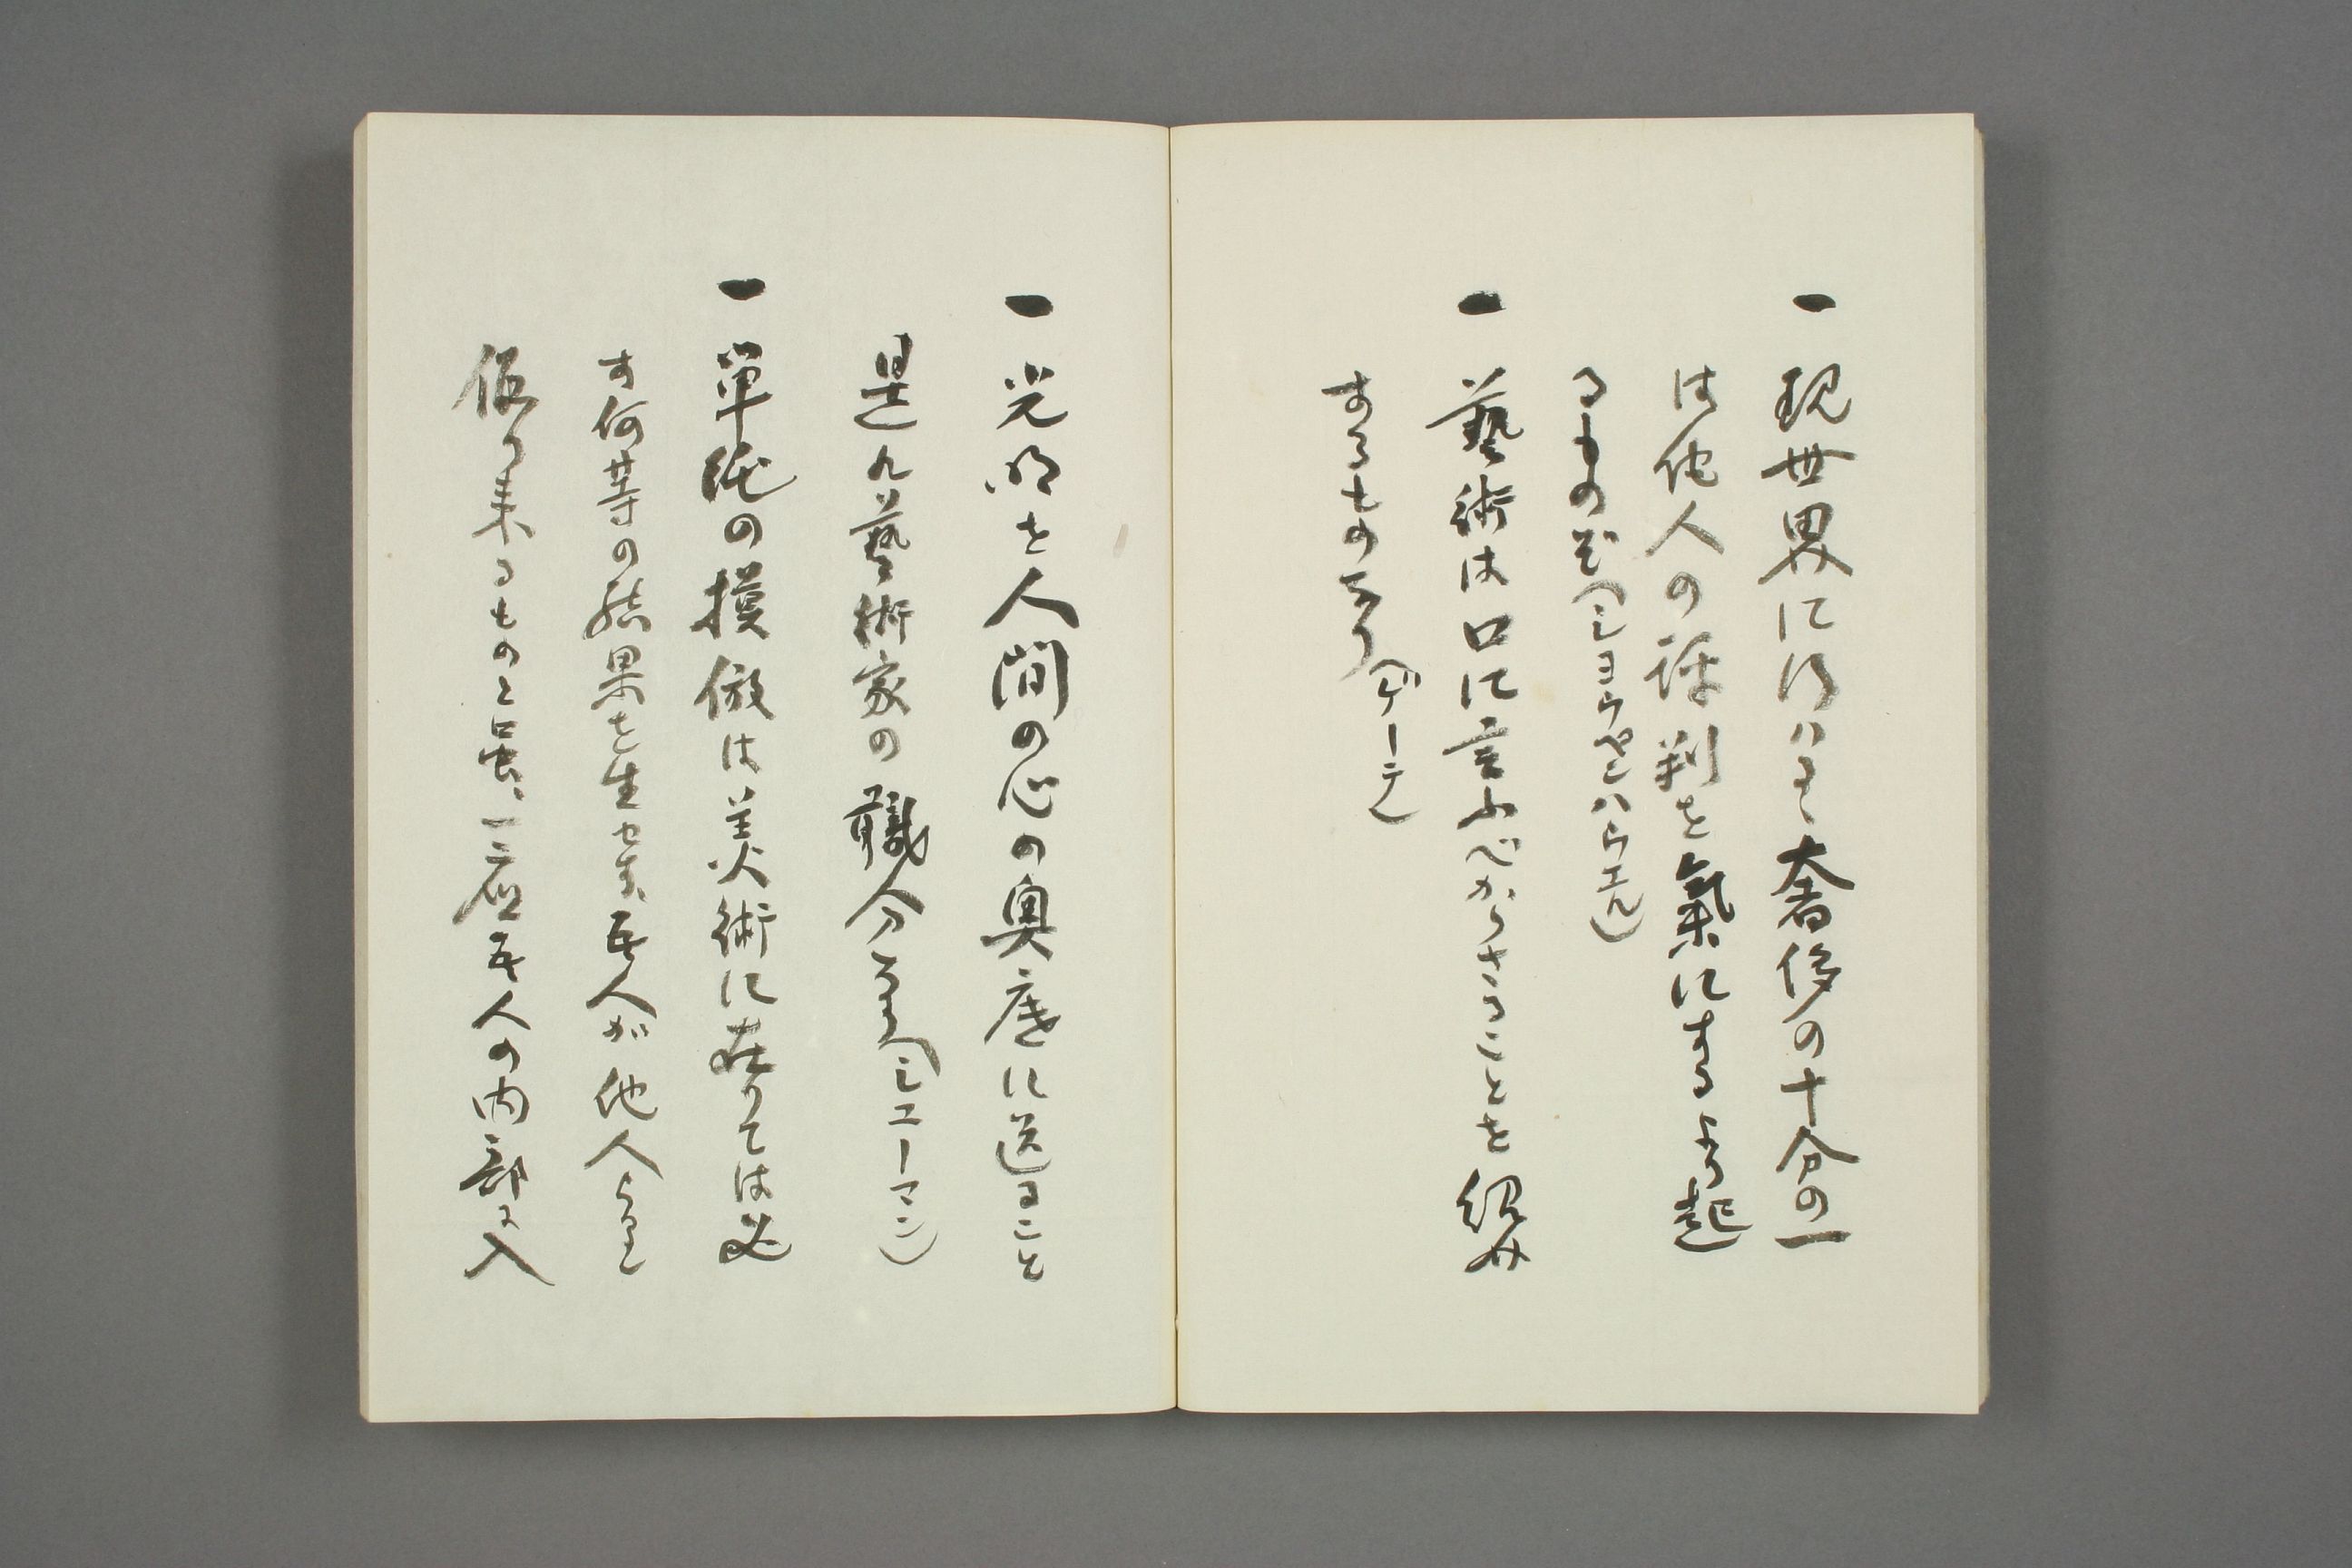 一 現世界に行はるゝ奢侈の十分の一
は他人の評判を氣にするより起
るものぞ(シヨウペンハウエル)
一 藝術は口に言ふべからざることを紹介
するものなり(ゲーテ)
一 光明を人間の心の奥底に送ること
是れ藝術家の職分なり(シユーマン)
一 單純の摸倣は美術に在りては必
す何等の結果を生せす、吾人が他人よりして
仮り来るものは一應吾人の内部に入